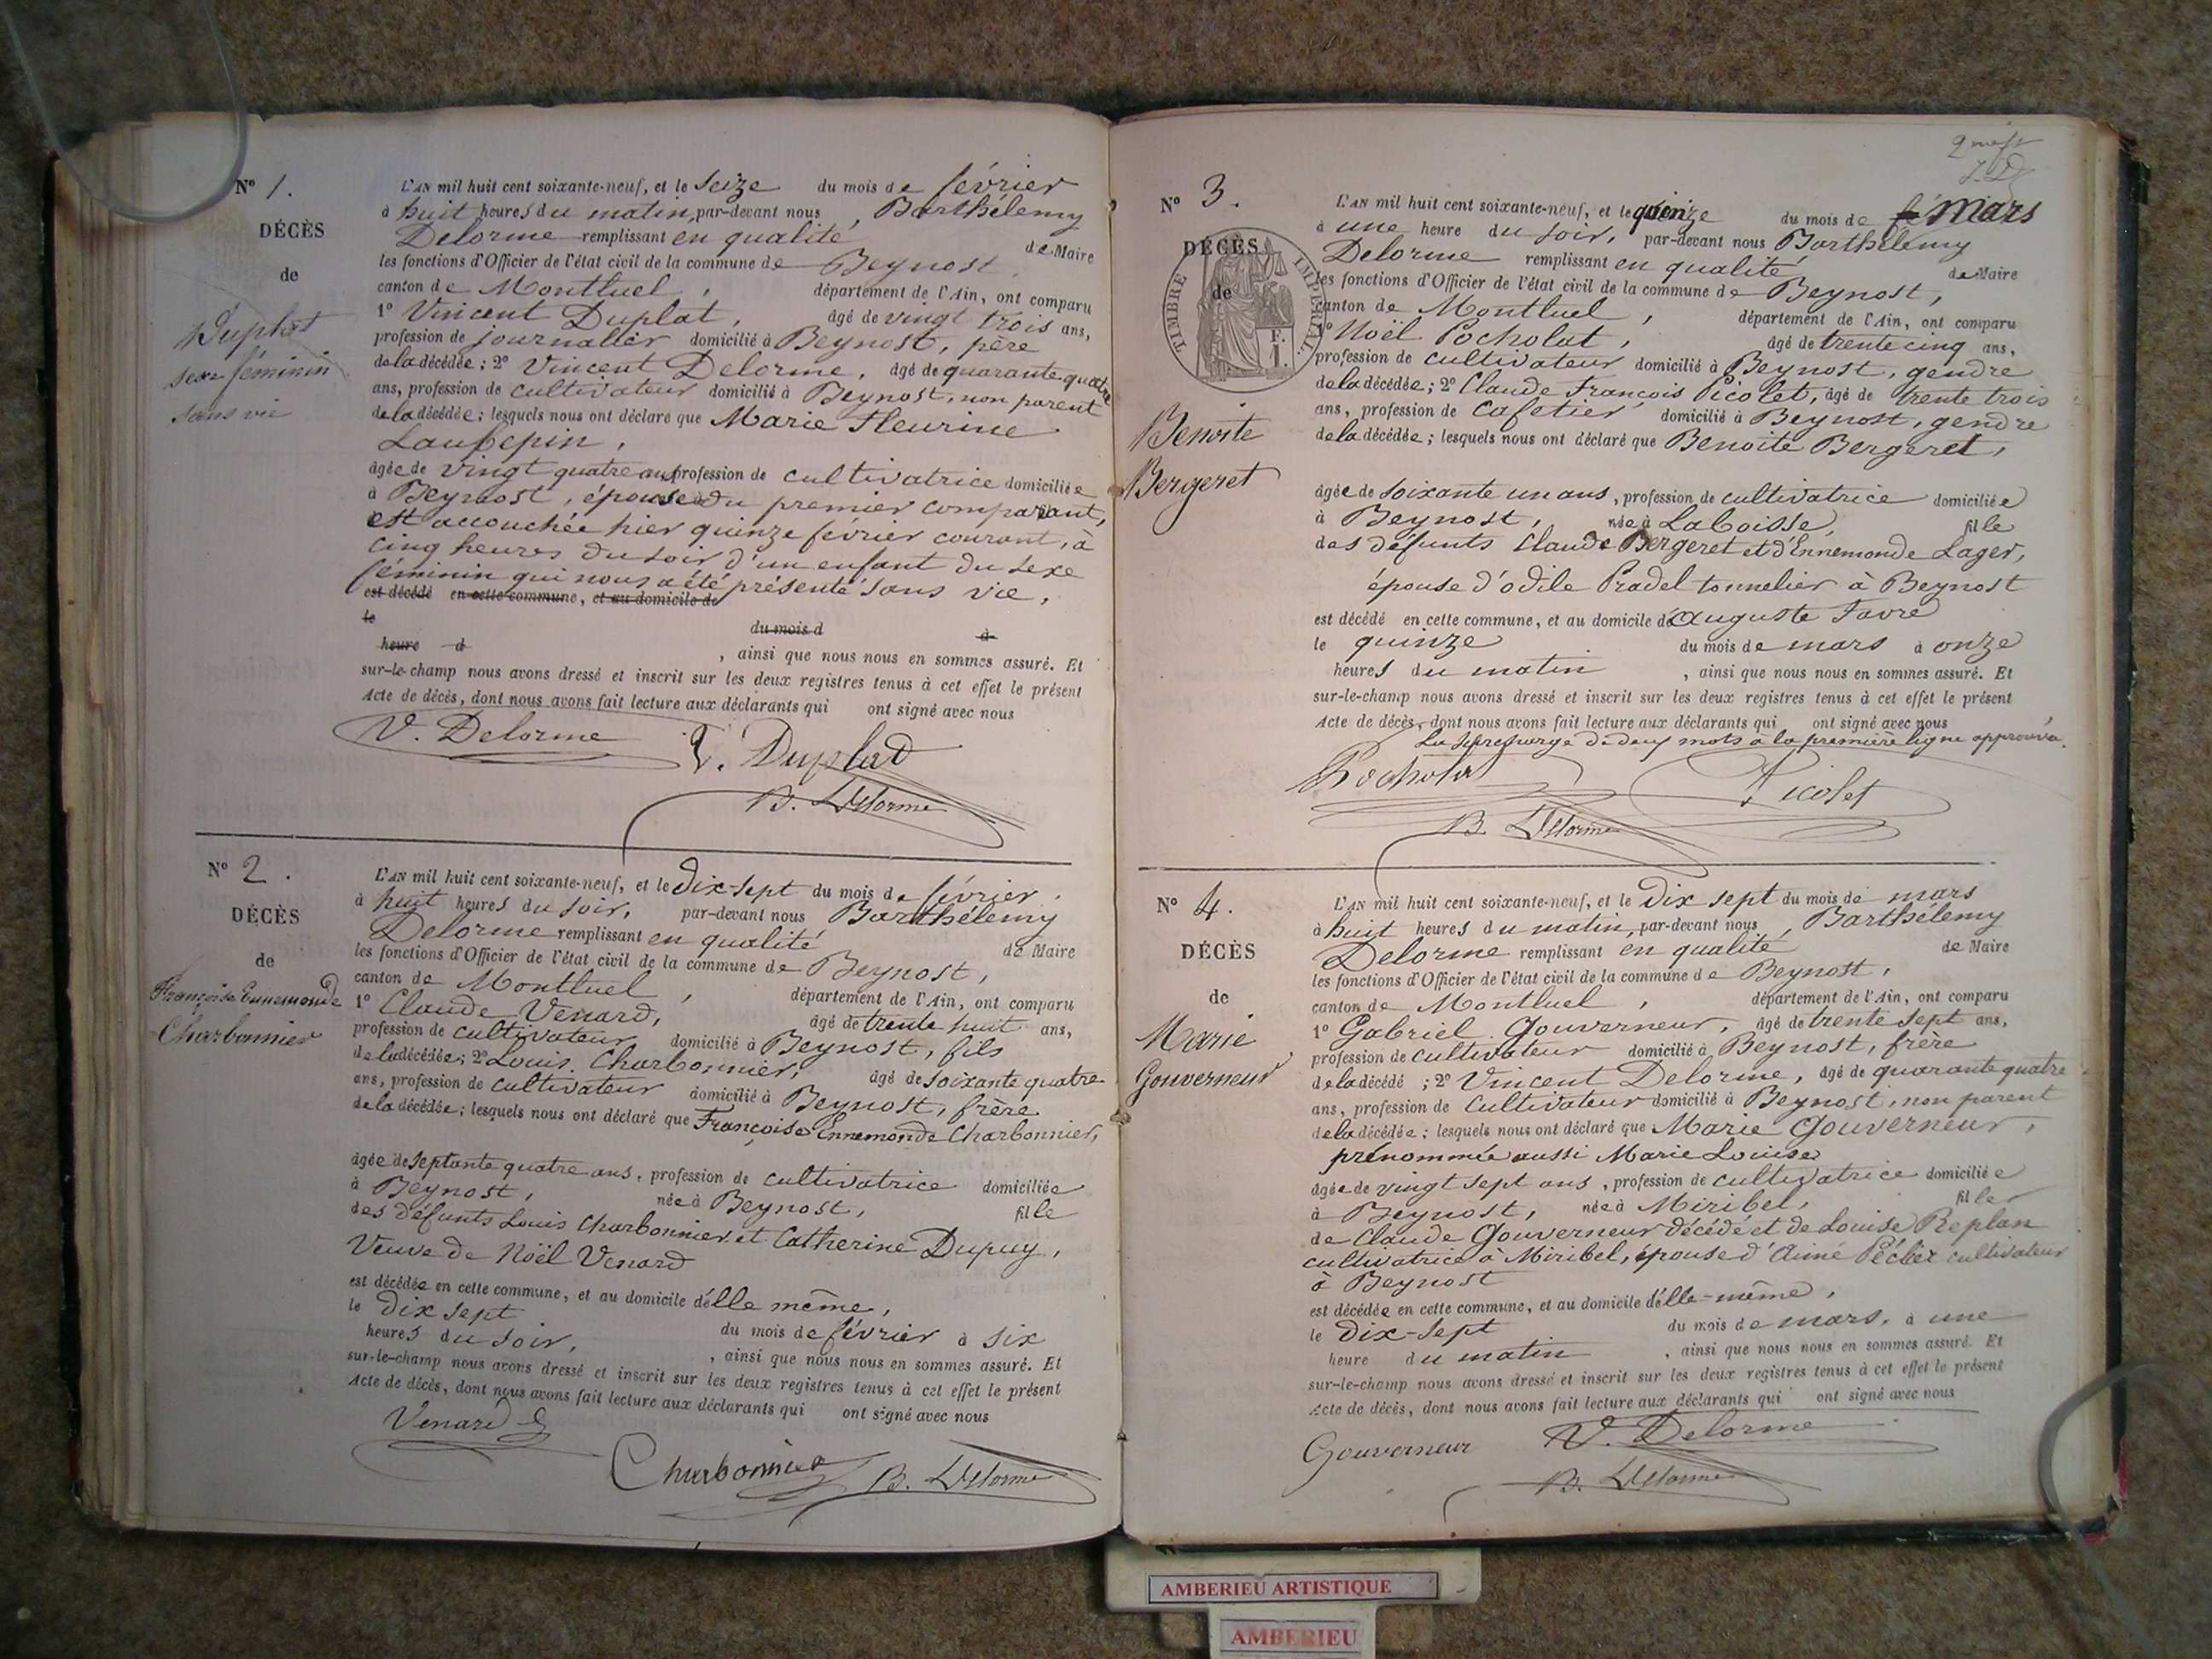 N° 1.
DÉCÈS
de
Duplat
sexe féminin
sans vie
L'AN mil huit cent soixante-neuf, et le seize du mois de février
à huit heures du matin, par-devant nous, Barthélemy
Delorme remplissant en qualité de Maire
les fonctions d'Officier de l'état civil de la commune de Beynost,
canton de Montluel, département de l'Ain, ont comparu
1° Vincent Duplat, âgé de vingt trois ans,
profession de journalier domicilié à Beynost, père
de la décédée; 2° Vincent Delorme, âgé de quarante quatre
ans, profession de cultivateur domicilié à Beynost, non parent
de la décédée; lesquels nous ont déclaré que Marie Fleurine
Laubepin,
âgée de vingt quatre ans profession de cultivatrice domiciliée
à Beynost, épouse du premier comparant,
est accouchée hier quinze février courant, à
cinq heures du soir d'un enfant du sexe
féminin qui nous a été présenté sans vie.
est décédé en cette commune, et au domicile de
le du mois d à
heure d , ainsi que nous nous en sommes assuré. Et
sur-le-champ nous avons dressé et inscrit sur les deux registres tenus à cet effet le présent
Acte de décès, dont nous avons fait lecture aux déclarants qui ont signé avec nous
V. Delorme V. Duplat
B. Delorme
N° 2.
DÉCÈS
de
Françoise Ennemonde
Charbonnier
L'AN mil huit cent soixante-neuf, et le dix-sept du mois de février,
à huit heures du soir, par-devant nous Barthélemy
Delorme remplissant en qualité de Maire
les fonctions d'Officier de l'état civil de la commune de Beynost,
canton de Montluel, département de l'Ain, ont comparu
1° Claude Venard, âgé de trente huit ans,
profession de cultivateur domicilié à Beynost, fils
de la décédée; 2° Louis Charbonnier, âgé de soixante quatre
ans, profession de cultivateur domicilié à Beynost, frère
de la décédée; lesquels nous ont déclaré que Françoise Ennemonde Charbonnier,
âgée de septante quatre ans, profession de cultivatrice domiciliée
à Beynost, née à Beynost, fille
des défunts Louis Charbonnier et Catherine Dupuy,
Veuve de Noël Venard
est décédée en cette commune, et au domicile d'elle même,
le dix sept du mois de février à six
heures du soir, , ainsi que nous nous en sommes assuré. Et
sur-le-champ nous avons dressé et inscrit sur les deux registres tenus à cet effet le présent
Acte de décès, dont nous avons fait lecture aux déclarants qui ont signé avec nous
Venard
Charbonnier B. Delorme
N° 3.
DÉCÈS
de
TIMBRE IMPÉRIAL
1 F.
Benoite
Bergeret
L'AN mil huit cent soixante-neuf, et le quinze du mois de fé mars
à une heure du soir, par-devant nous Barthélemy
Delorme remplissant en qualité de Maire
les fonctions d'Officier de l'état civil de la commune de Beynost,
canton de Montluel, département de l'Ain, ont comparu
1° Noël Pocholat, âgé de trente cinq ans,
profession de cultivateur domicilié à Beynost, gendre
de la décédée; 2° Claude François Picolet, âgé de trente trois
ans, profession de cafetier domicilié à Beynost, gendre
de la décédée; lesquels nous ont déclaré que Benoite Bergeret,
âgée de soixante un ans, profession de cultivatrice domiciliée
à Beynost, née à La boisse, fille
des défunts Claude Bergeret et d'Ennemonde Lager,
épouse d'odile Pradel tonnelier à Beynost
est décédé en cette commune, et au domicile d'Auguste Favre
le quinze du mois de mars à onze
heures du matin , ainsi que nous nous en sommes assuré. Et
sur-le-champ nous avons dressé et inscrit sur les deux registres tenus à cet effet le présent
Acte de décès, dont nous avons fait lecture aux déclarants qui ont signé avec nous
La surcharge de deux mots à la première ligne approuvée.
Pocholat Picolet
B. Delorme
N° 4.
DÉCÈS
de
Marie
Gouverneur
L'AN mil huit cent soixante-neuf, et le dix sept du mois de mars
à huit heures du matin, par-devant nous, Barthélemy
Delorme remplissant en qualité de Maire
les fonctions d'Officier de l'état civil de la commune de Beynost,
canton de Montluel, département de l'Ain, ont comparu
1° Gabriel Gouverneur, âgé de trente sept ans,
profession de cultivateur domicilié à Beynost, frère
de la décédé ; 2° Vincent Delorme, âgé de quarante quatre
ans, profession de cultivateur domicilié à Beynost, non parent
de la décédée; lesquels nous ont déclaré que Marie Gouverneur,
prénommée aussi Marie Louise
âgée de vingt sept ans, profession de cultivatrice domiciliée
à Beynost, née à Miribel, fille
de Claude Gouverneur décédé et de Louise Replan
cultivatrice à Miribel, épouse d'Aimé cultivateur
à Beynost
est décédée en cette commune, et au domicile d'elle-même,
le dix-sept du mois de mars, à une
heure du matin , ainsi que nous nous en sommes assuré. Et
sur-le-champ nous avons dressé et inscrit sur les deux registres tenus à cet effet le présent
Acte de décès, dont nous avons fait lecture aux déclarants qui ont signé avec nous
Gouverneur V. Delorme
B. Delorme
AMBERIEU ARTISTIQUE
AMBERIEU